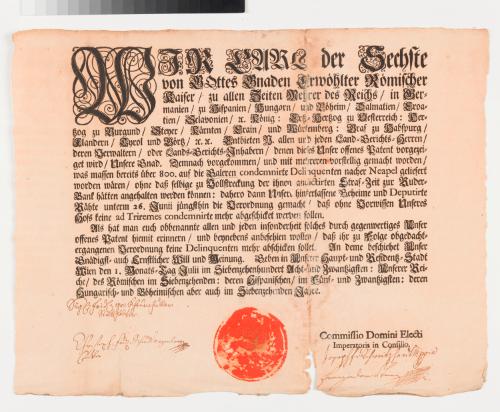 WIR CARL der Sechste
von GOttes Gnaden Erwöhlter Römischer
Kaiser / zu allen Zeiten Mehrer des Reichs / in Ger-
manien / zu Hispanien / Hungarn / und Böheim / Dalmatien / Croa-
tien / Sclavonien / x. König: Ertz-Hertzog zu Oesterreich: Her-
tzog zu Burgund / Steyer / Kärnten / Crain / und Würtemberg: Graf zu Habspurg /
Flandern / Tyrol und Görtz / x. x. Entbieten N. allen und jeden Land-Gerichts-Herren /
deren Verwaltern / oder Lands-Gerichts-Inhabern / denen dieses Unser offenes Patent vorgezei-
get wird / Unsere Gnad. Demnach vorgekommen / und mit mehreren vorstellig gemacht worden /
was massen bereits über 800. auf die Galeren condemnirte Delinquenten nacher Neapel geliefert
worden wären / ohne daß selbige zu Vollstreckung der ihnen andictirten Straf-Zeit zur Ruder-
Bank hätten angehalten werden können: dahero dann Unsere hinterlassene Geheime und Deputirte
Räthe unterm 26. Junii jüngsthin die Verordnung gemacht / daß ohne Vorwissen Unsers
Hofs keine ad Triremes condemnirte mehr abgeschicket werden sollen.
Als hat man euch obbenannte allen und jeden insonderheit solches durch gegenwertiges Unser
offenes Patent hiemit erinnern / und beynebens anbefehlen wollen / daß ihr zu Folge obgedacht-
ergangenen Verordnung keine Delinquenten mehr abschicken sollet. An deme beschiehet Unser
Gnädigst- auch Ernstlicher Will und Meinung. Geben in Unserer Haupt- und Residentz-Stadt
Wien den 1. Monats-Tag Julii im Siebenzehenhundert Acht- und Zwantzigsten: Unserer Rei-
che / des Römischen im Siebenzehenden: deren Hispanischen / im Fünf- und Zwantzigsten: deren
Hungarisch- und Böheimischen aber auch im Siebenzehenden Jahre.
Commissio Domini Electi
Imperatoris in Consilio.